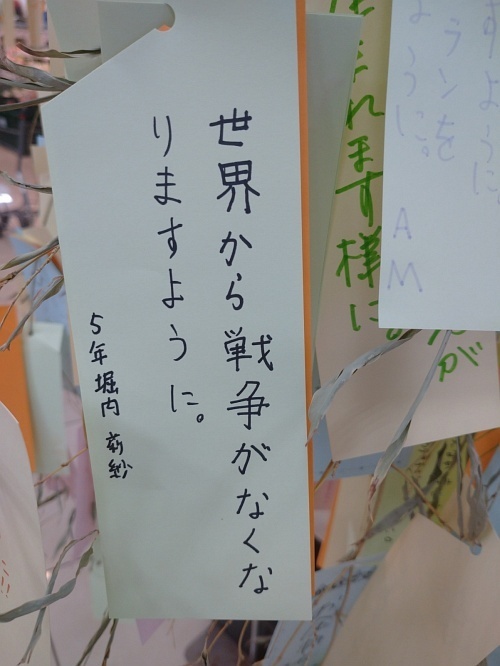 世界から戦争がなくな
りますように。
5年 堀内
されます様に。
が
すように
ランを
ように。
AM